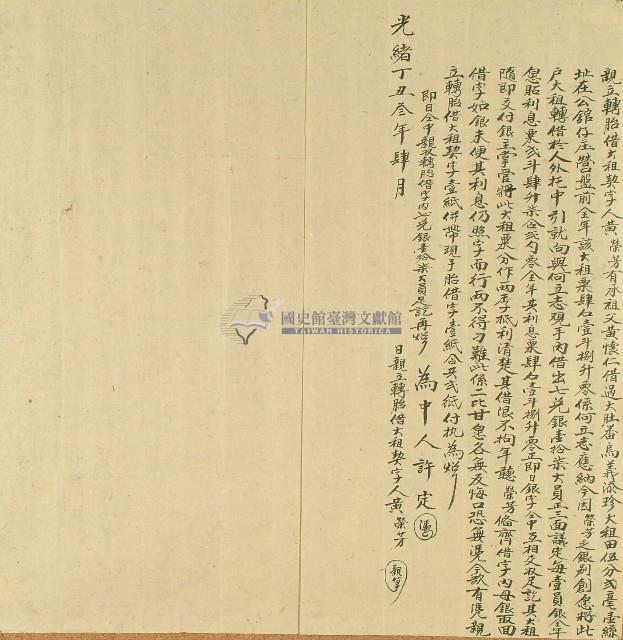 親立轉胎借大租契字人黃榮芳有承祖父黃懷仁借過大肚番烏義添珍大租田伍分弍毫壹絲
址在公舘仔庄營盤前全年該大租粟肆石壹斗捌升零係何立志應納今因榮芳乏銀別創愈將此
戶大租轉借於人外托中引就向與何立志观手內借出七兌銀壹拾柒大員正三面議定每壹員銀全年
愿貼利息粟弍斗肆升柒合弍勺零全年共利息粟肆石壹斗捌升零正即日銀字仝中互相交收足訖其大租
隨即交付銀主掌管將此大租粟分作兩季抵利清楚其借限不拘年聽榮芳俻齊借字內母銀取回
借字如銀未便其利息仍照字而行兩不得刁難此係二比甘愿各無反悔口恐無凴今欲有凴親
立轉胎借大租契字壹紙併帶現手胎借字壹紙合共弍紙付执為炤
即日仝中親收轉胎借字內七兌銀壹拾柒大員足訖再炤
為中人許定
光緒丁丑叁年肆月
日親立轉胎借大租契字人黃榮芳
親筆
國史館臺灣文獻館
TAIWAN HISTORICA